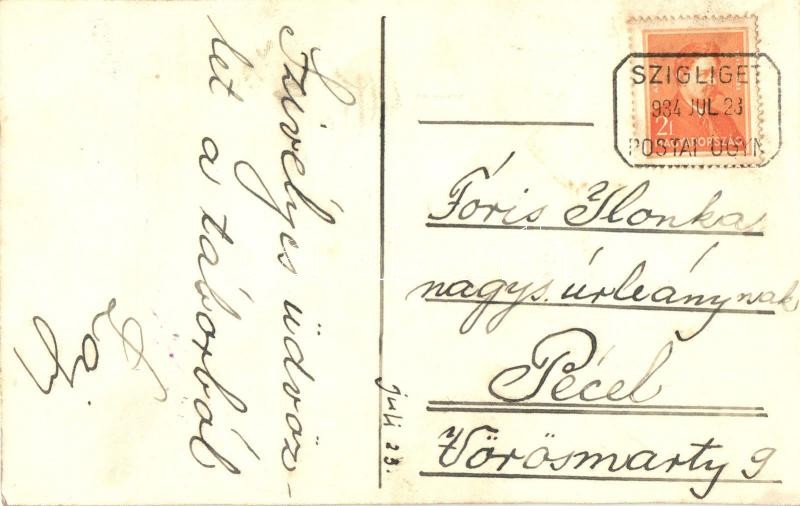 Szívélyes üdvöz-
let a táborból
Laji
juli 23.
SZIGLIGET
934 JUL 23
POSTAI ÜGYN
2f
MAGYARORSZÁG
Fóris Ilonka
nagys. úrleánynak
Pécel
Vörösmarty 9